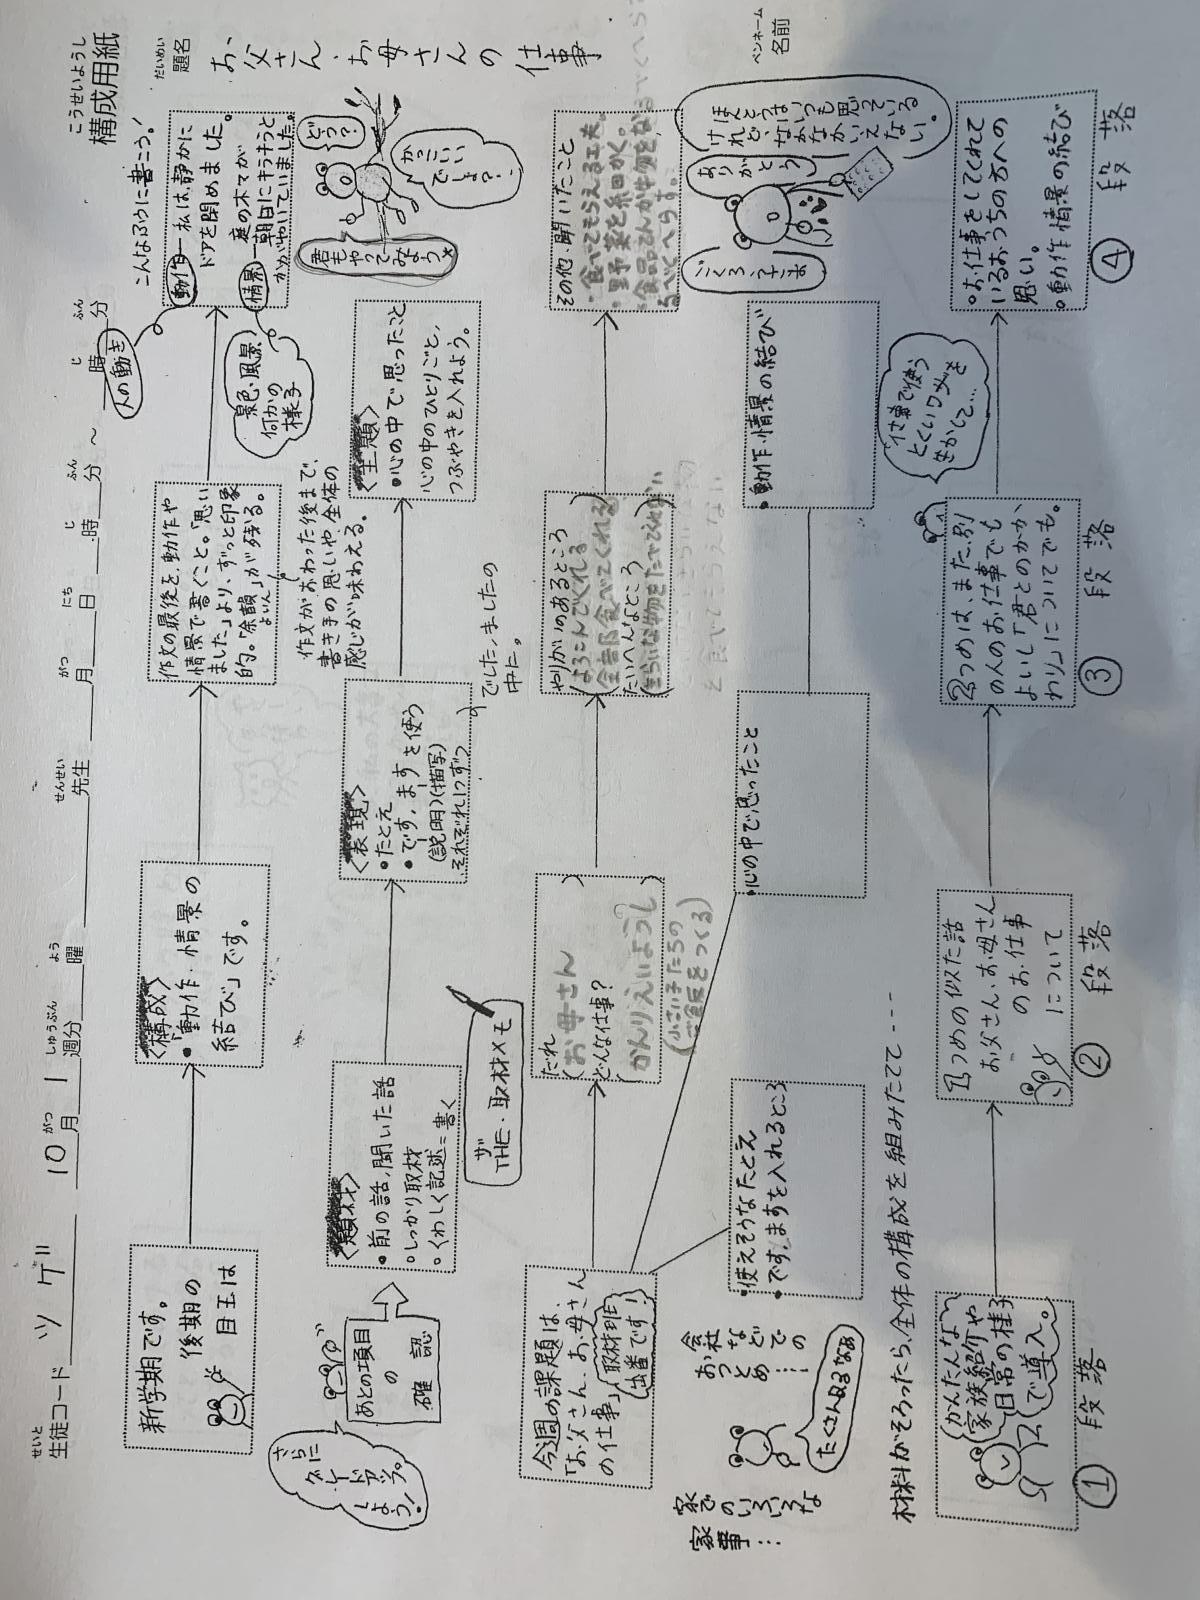 こうせいようし
構成用紙
せいと
生徒コード ツゲ 10月1週分 曜 先生 月 日 時 分 ～ 時 分
がつ しゅうぶん よう せんせい がつ にち じ ふん じ ふん
だいめい
題名
お父さん・お母さんの仕事
ペンネーム
名前
新学期です。
後期の
目玉は
〈構成〉
・「動作・情景の
結び」です。
作文の最後を、動作や
情景で書くこと。「思い
ました」より、ずっと印象
的。「余韻」が残る。
よいん
作文がおわった後まで、
書き手の思いや、全体の
感じが味わえる。
こんなふうに書こう!
動作―私は、静かに
ドアを閉めました。
情景―庭の木々が
朝日にキラキラと
かがやいていました。
人の動き
景色・風景
何かの
様子
さらに
グレードアップ
しよう!
あとの項目
の
確認
〈題材〉
・前の話、聞いた話
・しっかり取材
・くわしく記述=書く
〈表現〉
・たとえ
・です、ます を使う
(説明)(描写)
それぞれ1つずつ
でした、ましたの
中に。
〈主題〉
・心の中で思ったこと
心の中のひとりごと、
つぶやきを入れよう。
どう?
かっこいい
でしょ?
君もやってみよう
ザ
THE・取材メモ
今週の課題は、
「お父さん、お母さん
の仕事」
取材班
出番です!
だれ
(お母さん)
どんな仕事?
(かんりえいようし)
(小さい子たちの
ご飯をつくる)
やりがいのあるところ
(よろこんでくれる
全部食べてくれる)
たいへんなところ
その他・聞いたこと
・食べてもらえる工夫。
・野菜を細かく。
家での
いろいろな
家事…
会社
などでの
おつとめ…
たくさんあるなあ
・使えそうなたとえ
・です、ますを入れるところ
・心の中で思ったこと
・動作・情景の結び
ごくろうさま
ありがとう
ほんとうはいつも思っている
けれど、なかなかいえない。
材料がそろったら、全体の構成を組みたてて----
(かんたんな
家族紹介や
日常の様子)
で導入。
①段落
1つめの似た話
お父さん、お母さん
のお仕事
について
②段落
2つめは、また、別
の人のお仕事でも
よいし「君とのかか
わり」についてでも。
③段落
仕事で使う
とくいワザを
生かして…
・お仕事をしてくれて
いるおうちの方への
思い。
・動作・情景の結び
④段落